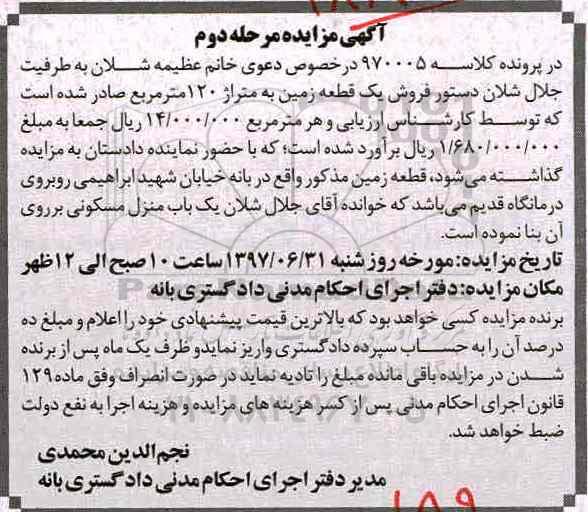 آگهی مزایده مرحله دوم
در پرونده کلاسه ۹۷۰۰۰۵ درخصوص دعوی خانم عظیمه شلان به طرفیت
جلال شلان دستور فروش یک قطعه زمین به متراژ ۱۲۰مترمربع صادر شده است
که توسط کارشناس ارزیابی و هر مترمربع ۱۴/۰۰۰/۰۰۰ ریال جمعا به مبلغ
۱/۶۸۰/۰۰۰/۰۰۰ ریال برآورد شده است؛ که با حضور نماینده دادستان به مزایده
گذاشته می‌شود، قطعه زمین مذکور واقع در بانه خیابان شهید ابراهیمی روبروی
درمانگاه قدیم می‌باشد که خوانده آقای جلال شلان یک باب منزل مسکونی برروی
آن بنا نموده است.
تاریخ مزایده: مورخه روز شنبه ۱۳۹۷/۰۶/۳۱ ساعت ۱۰ صبح الی ۱۲ ظهر
مکان مزایده: دفتر اجرای احکام مدنی دادگستری بانه
برنده مزایده کسی خواهد بود که بالاترین قیمت پیشنهادی خود را اعلام و مبلغ ده
درصد آن را به حساب سپرده دادگستری واریز نمایدو ظرف یک ماه پس از برنده
شدن در مزایده باقی مانده مبلغ را تادیه نماید در صورت انصراف وفق ماده ۱۲۹
قانون اجرای احکام مدنی پس از کسر هزینه های مزایده و هزینه اجرا به نفع دولت
ضبط خواهد شد.
نجم‌الدین محمدی
مدیر دفتر اجرای احکام مدنی دادگستری بانه
۱۸۹